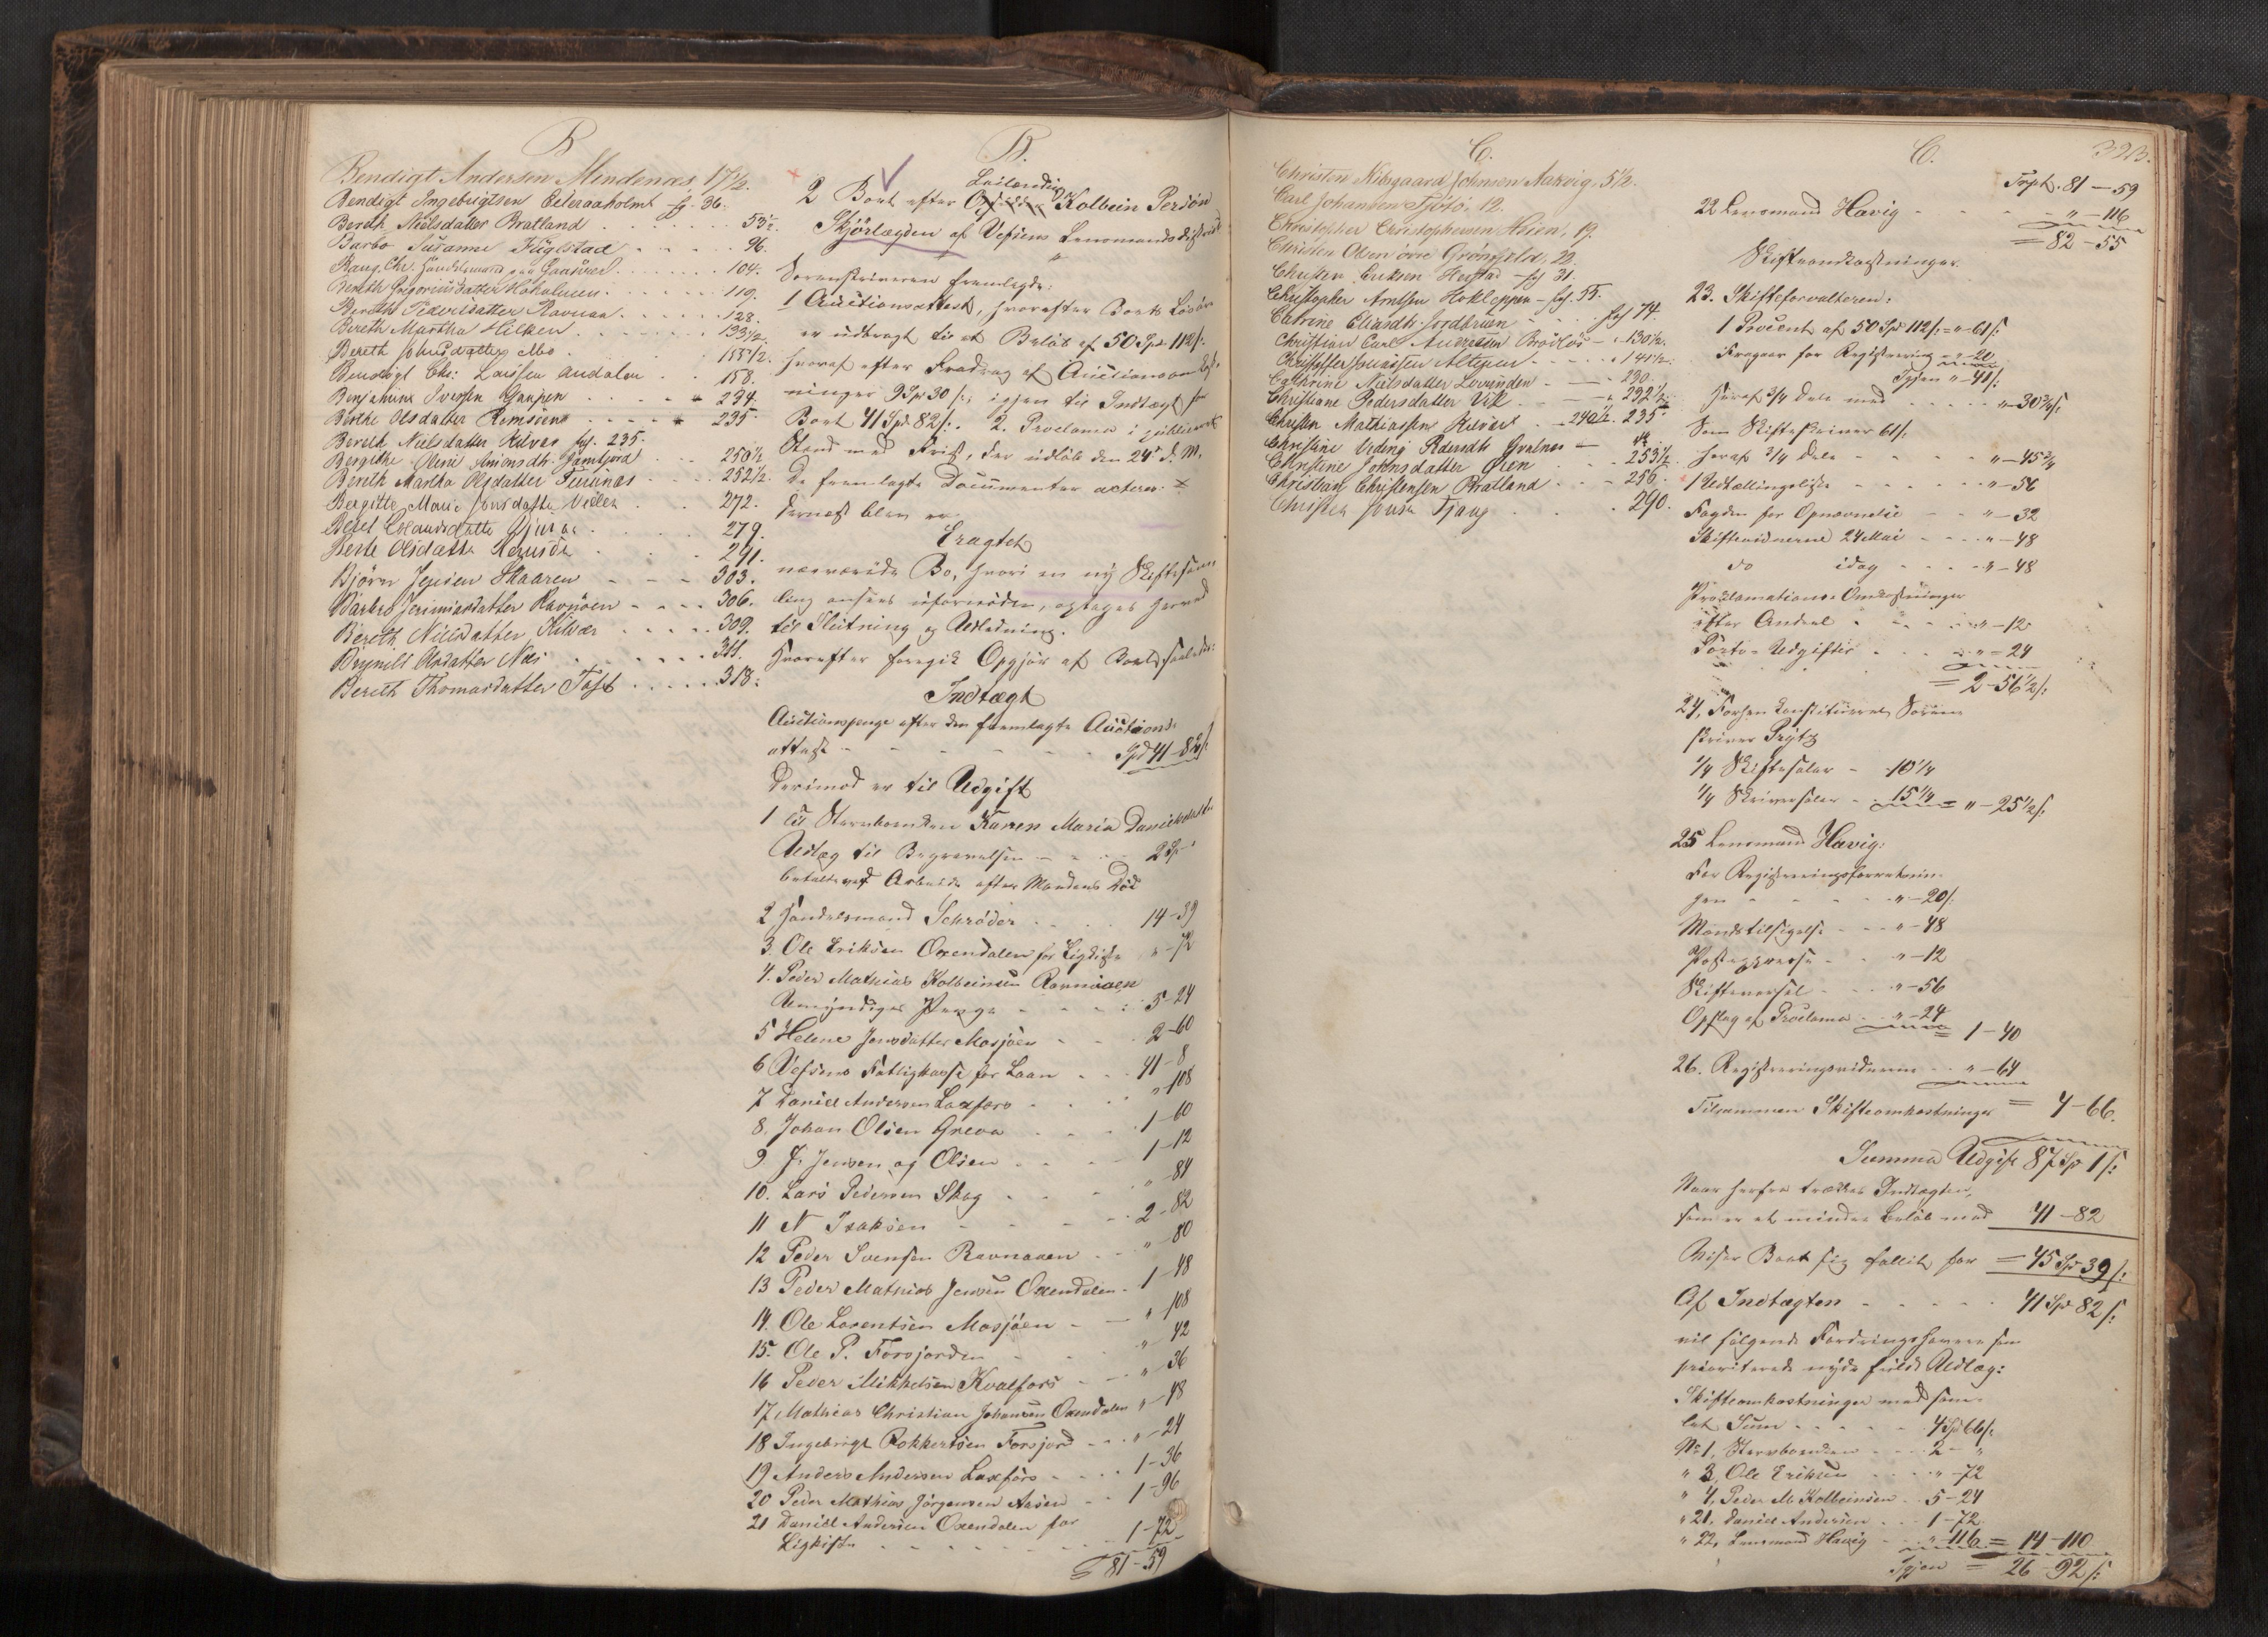 B
Bendigt Andersen Mindenæs, 17½.
Bendigt Ingebrigtsen Eileraaholmt fg. 36.
Bereth Nielsdatter Bratland . . . 53½.
Barbo Susanne Fuglstad . . . 96.
Baug, Chr. Handelsmand paa Gaasvær . . . 104.
Bereth Gregoriusdatter Hokalmen . . . 119.
Bereth Pedersdatter Ravnaa . . . 128.
Bereth Martha Hilken . . . 133½.
Bereth Johnsdatter Mo . . . 155½.
Bendigt Chr: Larssen Andalen . . . 158.
Benjamine Iversen Granpen . . . 234.
Berthe Olsdatter Remsøen . . . 235.
Bereth Nielsdatter Kilvær fg. 235.
Bergithe Oline Antonsdtr. Jamtjord . . 250½
Bereth Martha Olsdatter Furunæs . . . 252½.
Bergitte Marie Jonsdatter Vedlen . . . 272.
Beret Erlandsdatter . . . 279.
Berte Olsdatter . . . 291.
Bjørn Jensen Skaaren - - - 303.
Barbro Jerimiasdatter Ravnøen - - - 306.
Bereth Nielsdatter Kilvær . . . 309.
Brynild Olsdatter Næs . . . 311.
Bereth Thomasdatter Toft . . . 318.
B.
Leilænding
2 Boet efter Kolbein Persøn
Skjørlægden af Vefsens Lensmandsdistrict
Sorenskriveren fremlagde:
1 Auctionsattest, hvorefter Boets Løsøre
er udbragt til et Beløb af 50 Spd 112 s:
hvoraf efter Fradrag af Auctionsomkost-
ninger 9 Spd 30 s:, igjen til Indtægt for
Boet 41 Spd 82 s:. 2. Proclama i publiceret
Stand med Frist, der udløb den 24de d. M.
De fremlagte Documenter acteres.
Dernæst blev
Eragtet
nærværende Bo, hvori en ny Skiftesam-
ling ansees ufornøden, optages herved
til Slutning og Udlodning.
Hvorefter foregik Opgjør af Boet saaledes:
Indtægt
Auctionspenge efter den fremlagte Auctions-
attest - - - Spd 41-82 s:
Derimod er til Udgift
1 til Stervboenken Karen Maria Danielsdatter
Udlæg til Begravelsen - - - 2 Sp "
betalte ved Arbeide efter Mandens Død
2 Handelsmand Schrøder . . . 14-39
3. Ole Eriksen Oxendalen for Ligkiste " -72
4. Peder Mathias Kolbeinsen Ravnaaen
Umyndiges Penge - - - 5-24
5 Helene Jensdatter Mosjøen - - 2-60
6 Vefsens Fattigkasse for Laan . . . 41-8
7 Daniel Andersen Laxfors - . . " -108
8. Johan Olsen Greva . . . 1-60
9 J. Jensen og Olsen . . . 1-12
10. Lars Pedersen Skog . . . " -84
11 N Isaksen - - - 2-82
12 Peder Svensen Ravnaaen . . . " -80
13 Peder Mathias Jensen Oxendalen . 1-48
14. Ole Lorentsen Mosjøen - - " -108
15. Ole P. Forsjorden - . . " -42
16 Peder Mikkelsen Kvalfors - - " -36
17. Mathias Christian Johansen Oxendalen " -48
18 Ingebrigt Rokkertsen Forsjord - . . " -24
19 Anders Andersen Laxfors - . . . 1-36
20 Peder Mathias Jørgensen Aasen - . 1-96
21 Daniel Andersen Oxendalen for
Ligkiste - - - 1-72
= 81-59
C.
Christen Nilsgaard Johnsen Aakvig. 5½.
Carl Johansen Tjøtø. 12.
Christopher Christophersen Høien, 19.
Christen Olsen øvre Grønfjeld, 22.
Christen Eriksen Herstad - fg 31.
Christopher Arntsen Hokleppen - fg. 55.
Catrine Eliasdtr. Jordbruen . . . fg 74.
Christian Carl Andreasen Brødløs - . 130½.
Christoffer Jonassen Alteren . . . 141½.
Cathrine Nielsdatter Lovunden - - . 230.
Christiane Pedersdatter Vik . . . 232½.
Christen Mathiassen Kilvær . - 240½. 235
Christine Veding Pedersdtr Hvalnæs -
Christine Johnsdatter Øien . . . 253½.
Christian Christensen Bratland . . . 256.
Christen Jonsen Tjong . . . 290.
C.
323.
Trpt. 81-59
22 Lensmand Havig - - - " -116
= 82-55
Skifteomkostninger.
23. Skifteforvalteren:
1 Procent af 50 Spd 112 s: = " -61 s:
Fragaar for Registrering " -20
Igjen " -41 s:
heraf 3/4 Dele med . . . " -30¾ s:
Som Skifteskriver 61 s.
heraf 3/4 Dele - - - " -45¾
1 Indkaldingsliste - - - " -56
Fogden for Opnævnelse - - " -32
Skiftevidnerne 24 Mai - - - " -48
do idag - - - " -48
Proclamations-Omkostninger
efter Andeel . . . " -12
Porto-Udgifter . . . " -24
= 2-56½ s:
24, Forhen constitueret Soren-
skriver Prytz
1/4 Skiftesalær - 10¼
1/4 Skriversalær - 15¼ = " -25½ s:
25 Lensmand Havig:
For Registreringsforretnin-
gen - - - " -20 s:
Mandstilsigelse - - " -48
Postexpresse - . " -12
Skiftevarsel . . . " -56
Opslag af Proclama . . " -24
= 1-40
26. Registreringsvidnerne . . " -64
Tilsammen Skifteomkostninger = 4-66.
Summa Udgift 87 Sp 1 s:
Naar herfra trækkes Indtægten,
som er et mindre Beløb med 41-82
Viser Boet sig fallit for = 45 Spd 39 s:
Af Indtægten - - - 41 Spd 82 s:
vil følgende Fordringshavere som
prioriterede nyde fuldt Udlæg:
Skifteomkostninger med sam-
let Sum - - - 4 Sp 66 s.
No 1, Stervboenken - - - 2- "
" 3, Ole Eriksen . . . " -72
" 4, Peder M. Kolbeinsen . 5-24
" 21, Daniel Andersen . . . 1-72
" 22, Lensmand Havig - " -116 = 14-110
Igjen = 26-92 s: